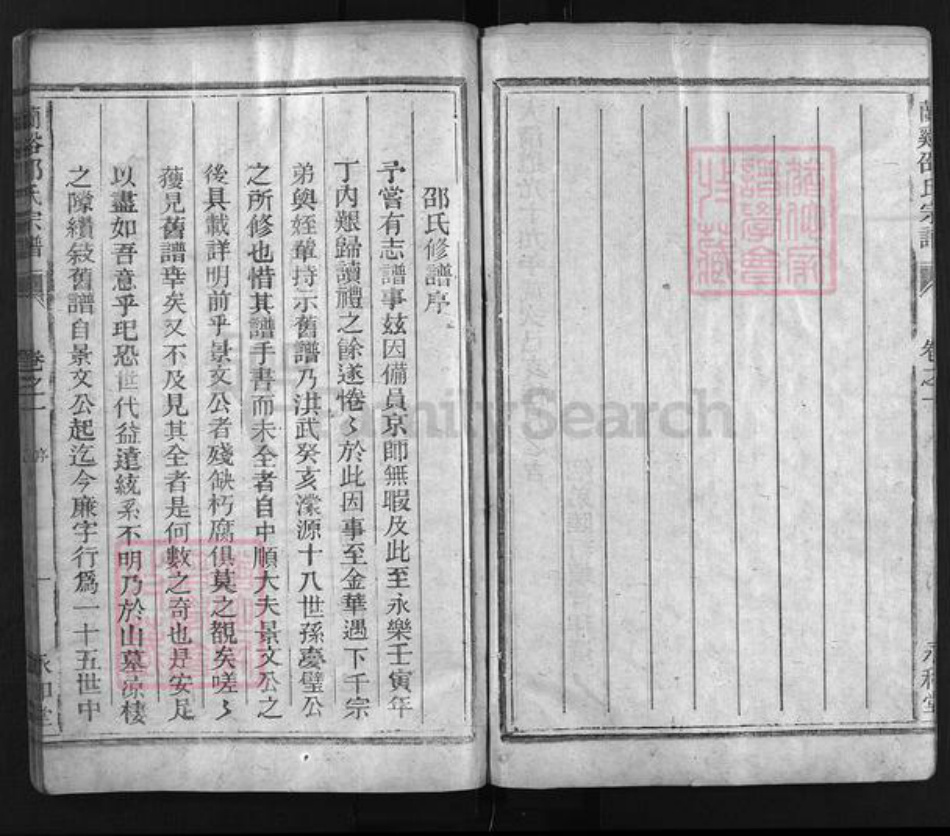 蘭谿邵氏宗譜
卷之一
永和堂
邵氏修譜序
予嘗有志譜事玆因備員京師無暇及此至永樂壬寅年
丁內艱歸讀禮之餘遂惓〻於此因事至金華遇下千宗
弟與姪輩持示舊譜乃洪武癸亥濚源十八世孫慶璧公
之所修也惜其譜手書而未全者自中順大夫景文公之
後具載詳明前乎景文公者殘缺朽腐俱莫之覩矣嗟〻
獲見舊譜幸矣又不及見其全者是何數之奇也是安足
以盡如吾意乎玘恐世代益遠統系不明乃於山墓涼棲
之障纘敍舊譜自景文公起迄今廉字行爲一十五世中
蘭谿邵氏宗譜
卷之一
序
一
永和堂
FamilySearch